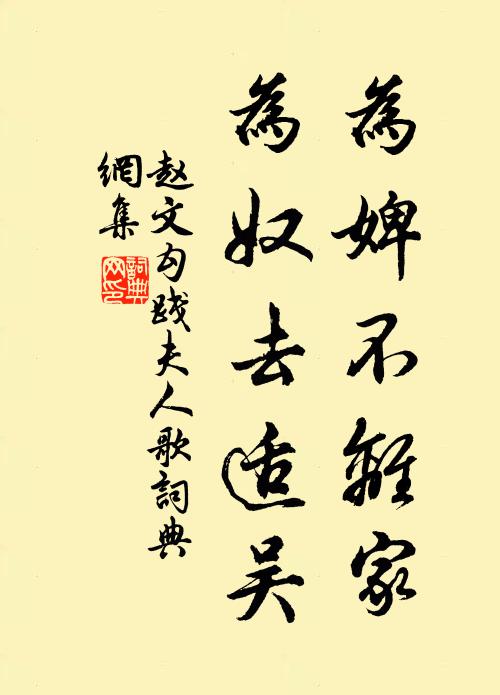 為婢不離家
為奴去适吴
赵文勾践夫人歌詞典
網集
詞典网印